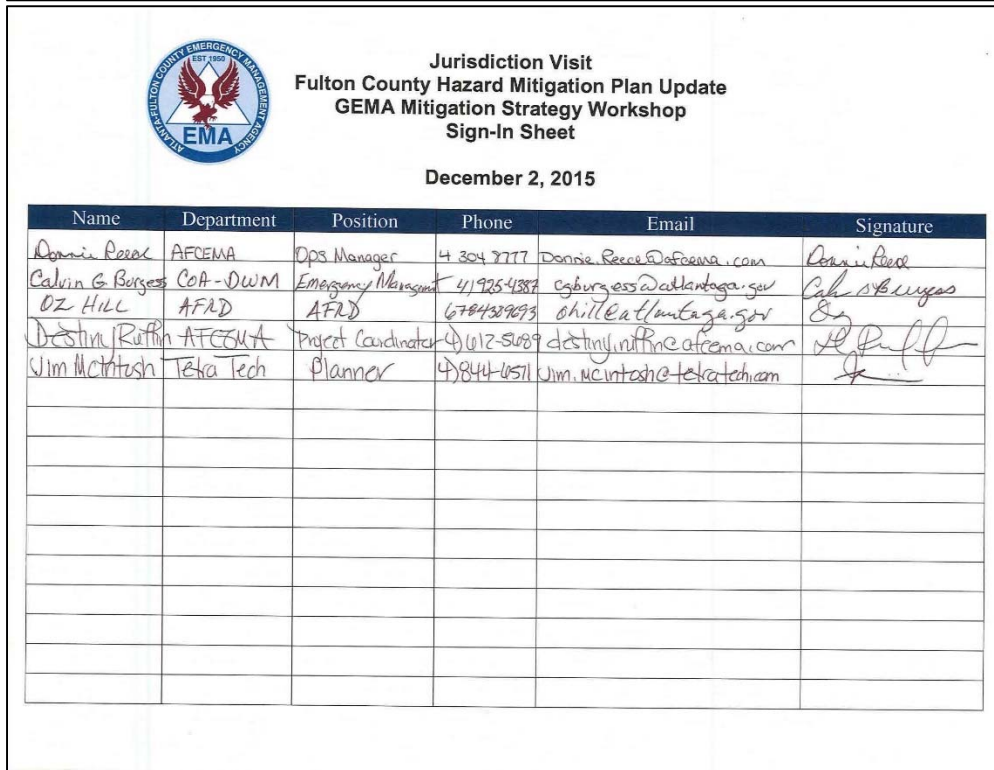 ATLANTA-FULTON COUNTY EMERGENCY MANAGEMENT AGENCY
EST 1950
EMA
Jurisdiction Visit
Fulton County Hazard Mitigation Plan Update
GEMA Mitigation Strategy Workshop
Sign-In Sheet
December 2, 2015
Name Department Position Phone Email Signature
Donnie Reece AFCEMA Ops Manager 4 304 8777 Donnie.Reece@afcema.com Donnie Reece
Calvin G. Burgess COA-DWM Emergency Managemt 4)925-4387 cgburgess@atlantaga.gov
OZ HILL AFRD AFRD 6784389693 ohill@atlantaga.gov
Destini Ruffin AFCEMA Project Coordinator 4)612-5689 destiny.ruffin@afcema.com
Jim McIntosh Tetra Tech Planner 4)844-6571 Jim.mcintosh@tetratech.com